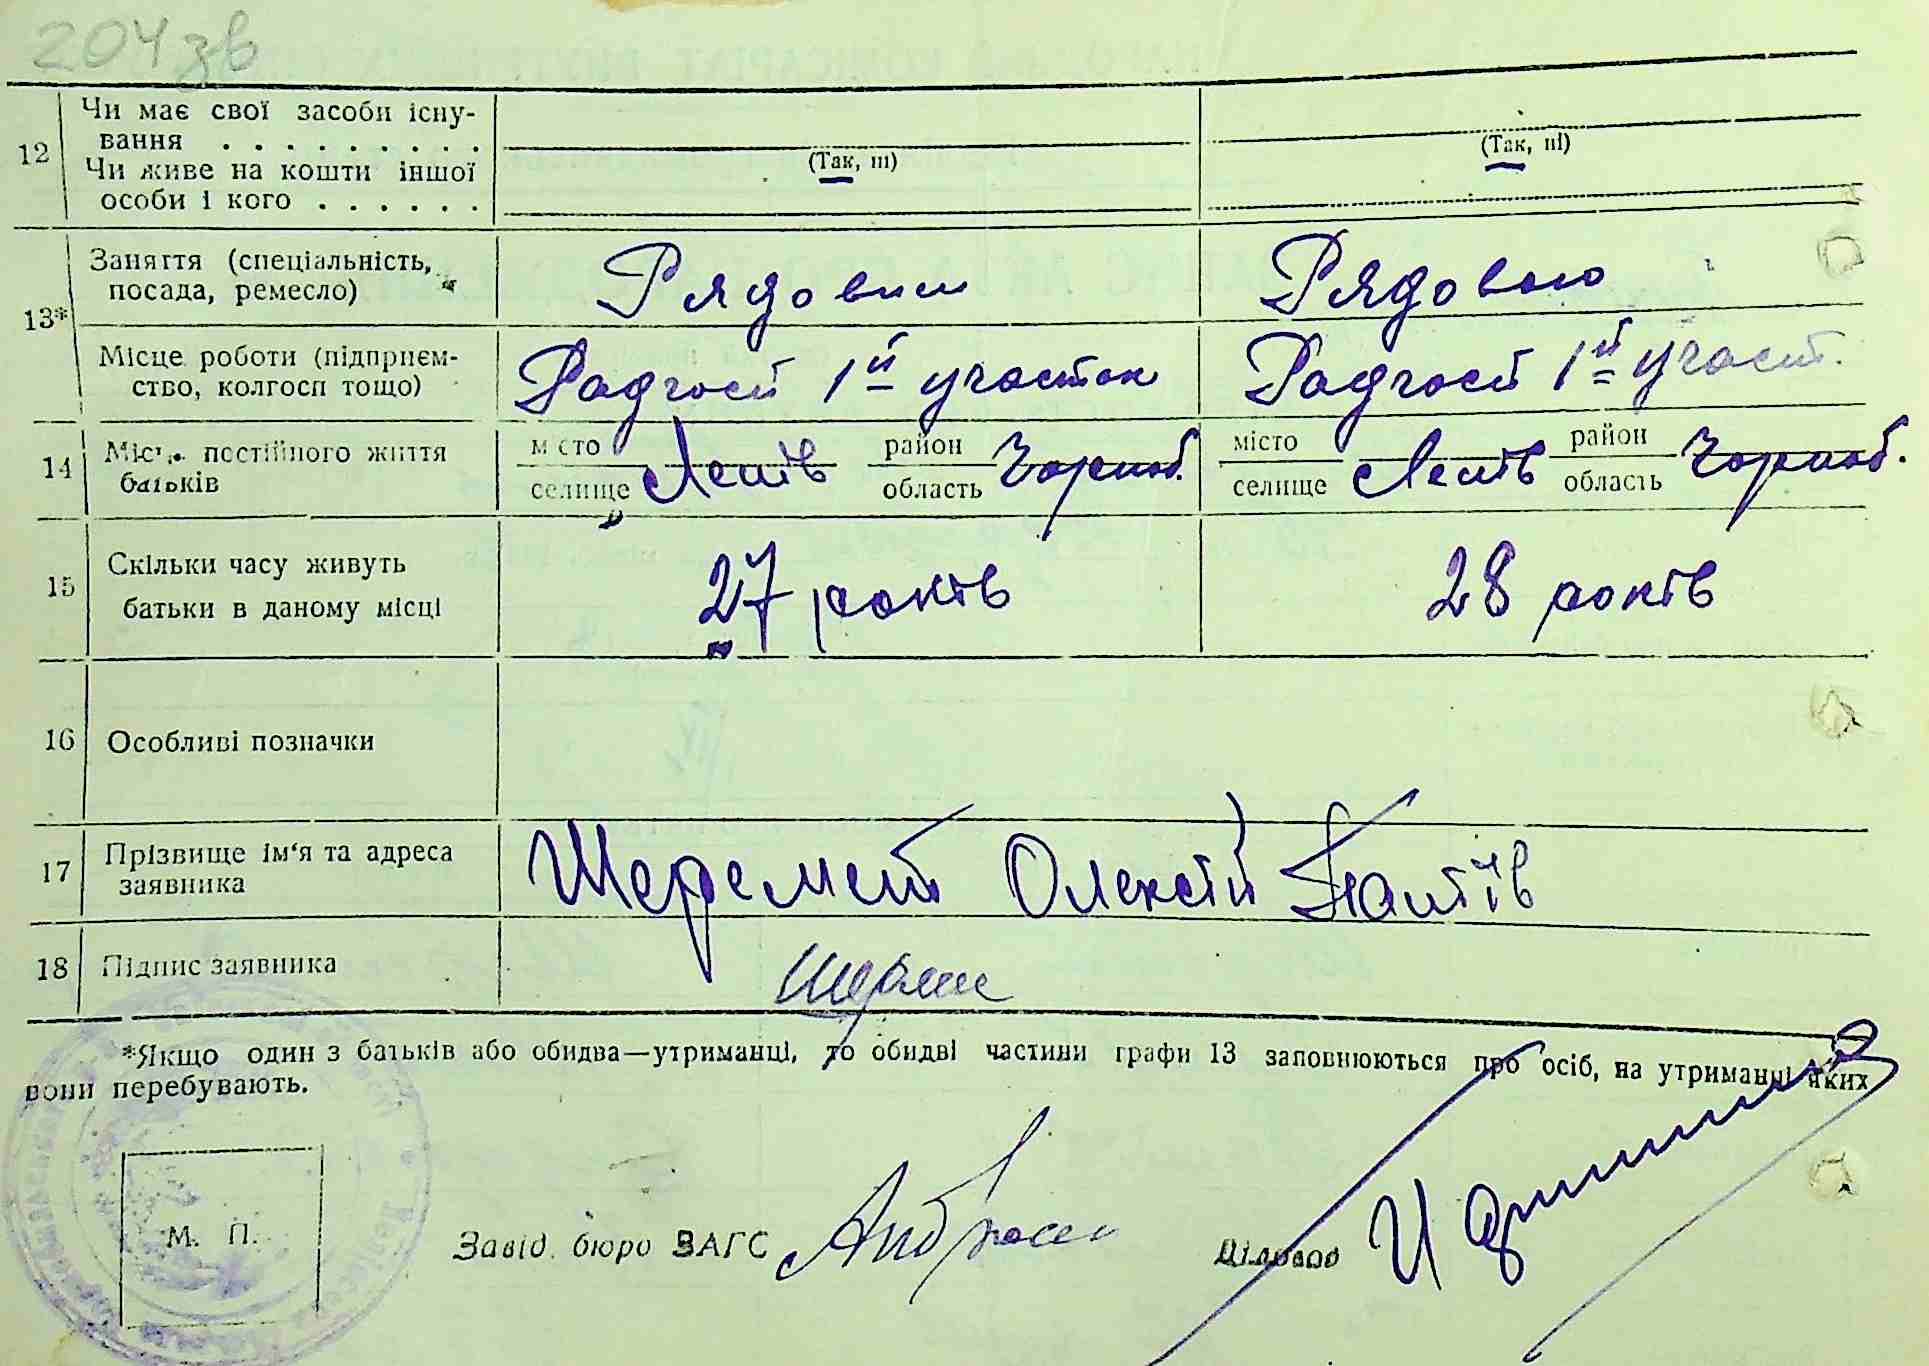 204 зв
12 Чи має свої засоби існу-
вання . . . . . . . . .
(Так, ні) (Так, ні)
Чи живе на кошти іншої
особи і кого . . . . . .
13* Заняття (спеціальність,
посада, ремесло) Рядовим Рядовою
Місце роботи (підприєм-
ство, колгосп тощо) Радгосп 1й участок Радгосп 1й участ.
14 Місце постійного життя
батьків
місто селище Лелів район область Чорноб. місто селище Лелів район область Чорноб.
15 Скільки часу живуть
батьки в даному місці 27 років 28 років
16 Особливі позначки
17 Прізвище ім'я та адреса
заявника Шеремет Олексій
18 Підпис заявника
*Якщо один з батьків або обидва—утриманці, то обидві частини графи 13 заповнюються про осіб, на утриманні яких
вони перебувають.
М. П.
Завід. бюро ЗАГС Діловод